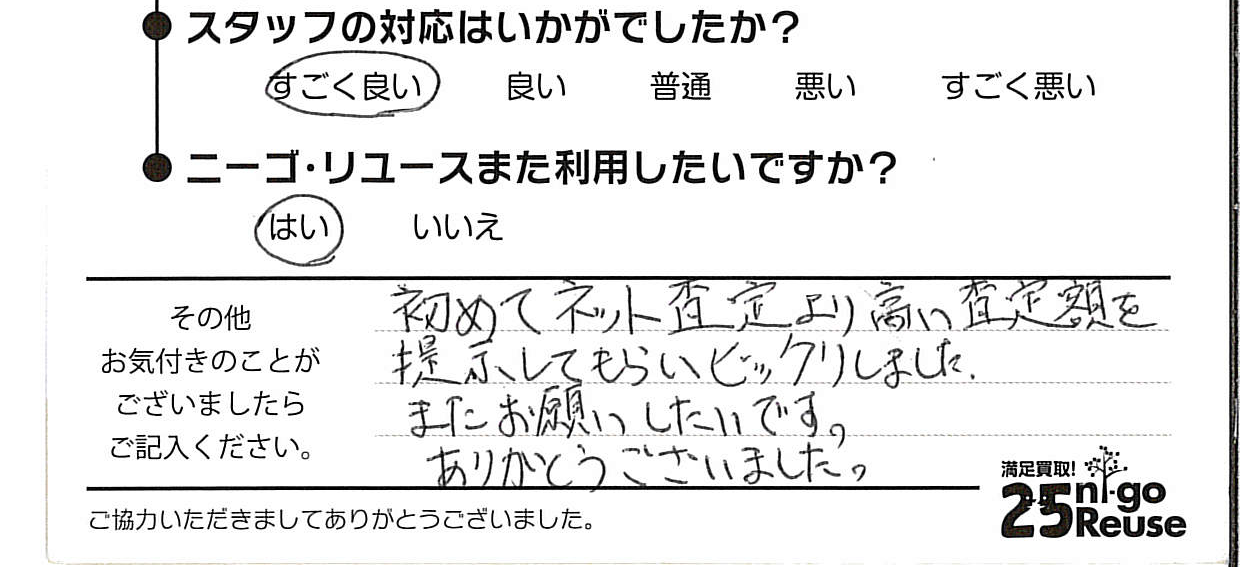 スタッフの対応はいかがでしたか？
すごく良い 良い 普通 悪い すごく悪い
ニーゴ・リユースまた利用したいですか？
はい いいえ
その他
お気付きのことが
ございましたら
ご記入ください。
初めてネット査定より高い査定額を
提示してもらいビックリしました.
またお願いしたいです。
ありがとうございました。
満足買取!
25 ni-go
Reuse
ご協力いただきましてありがとうございました。